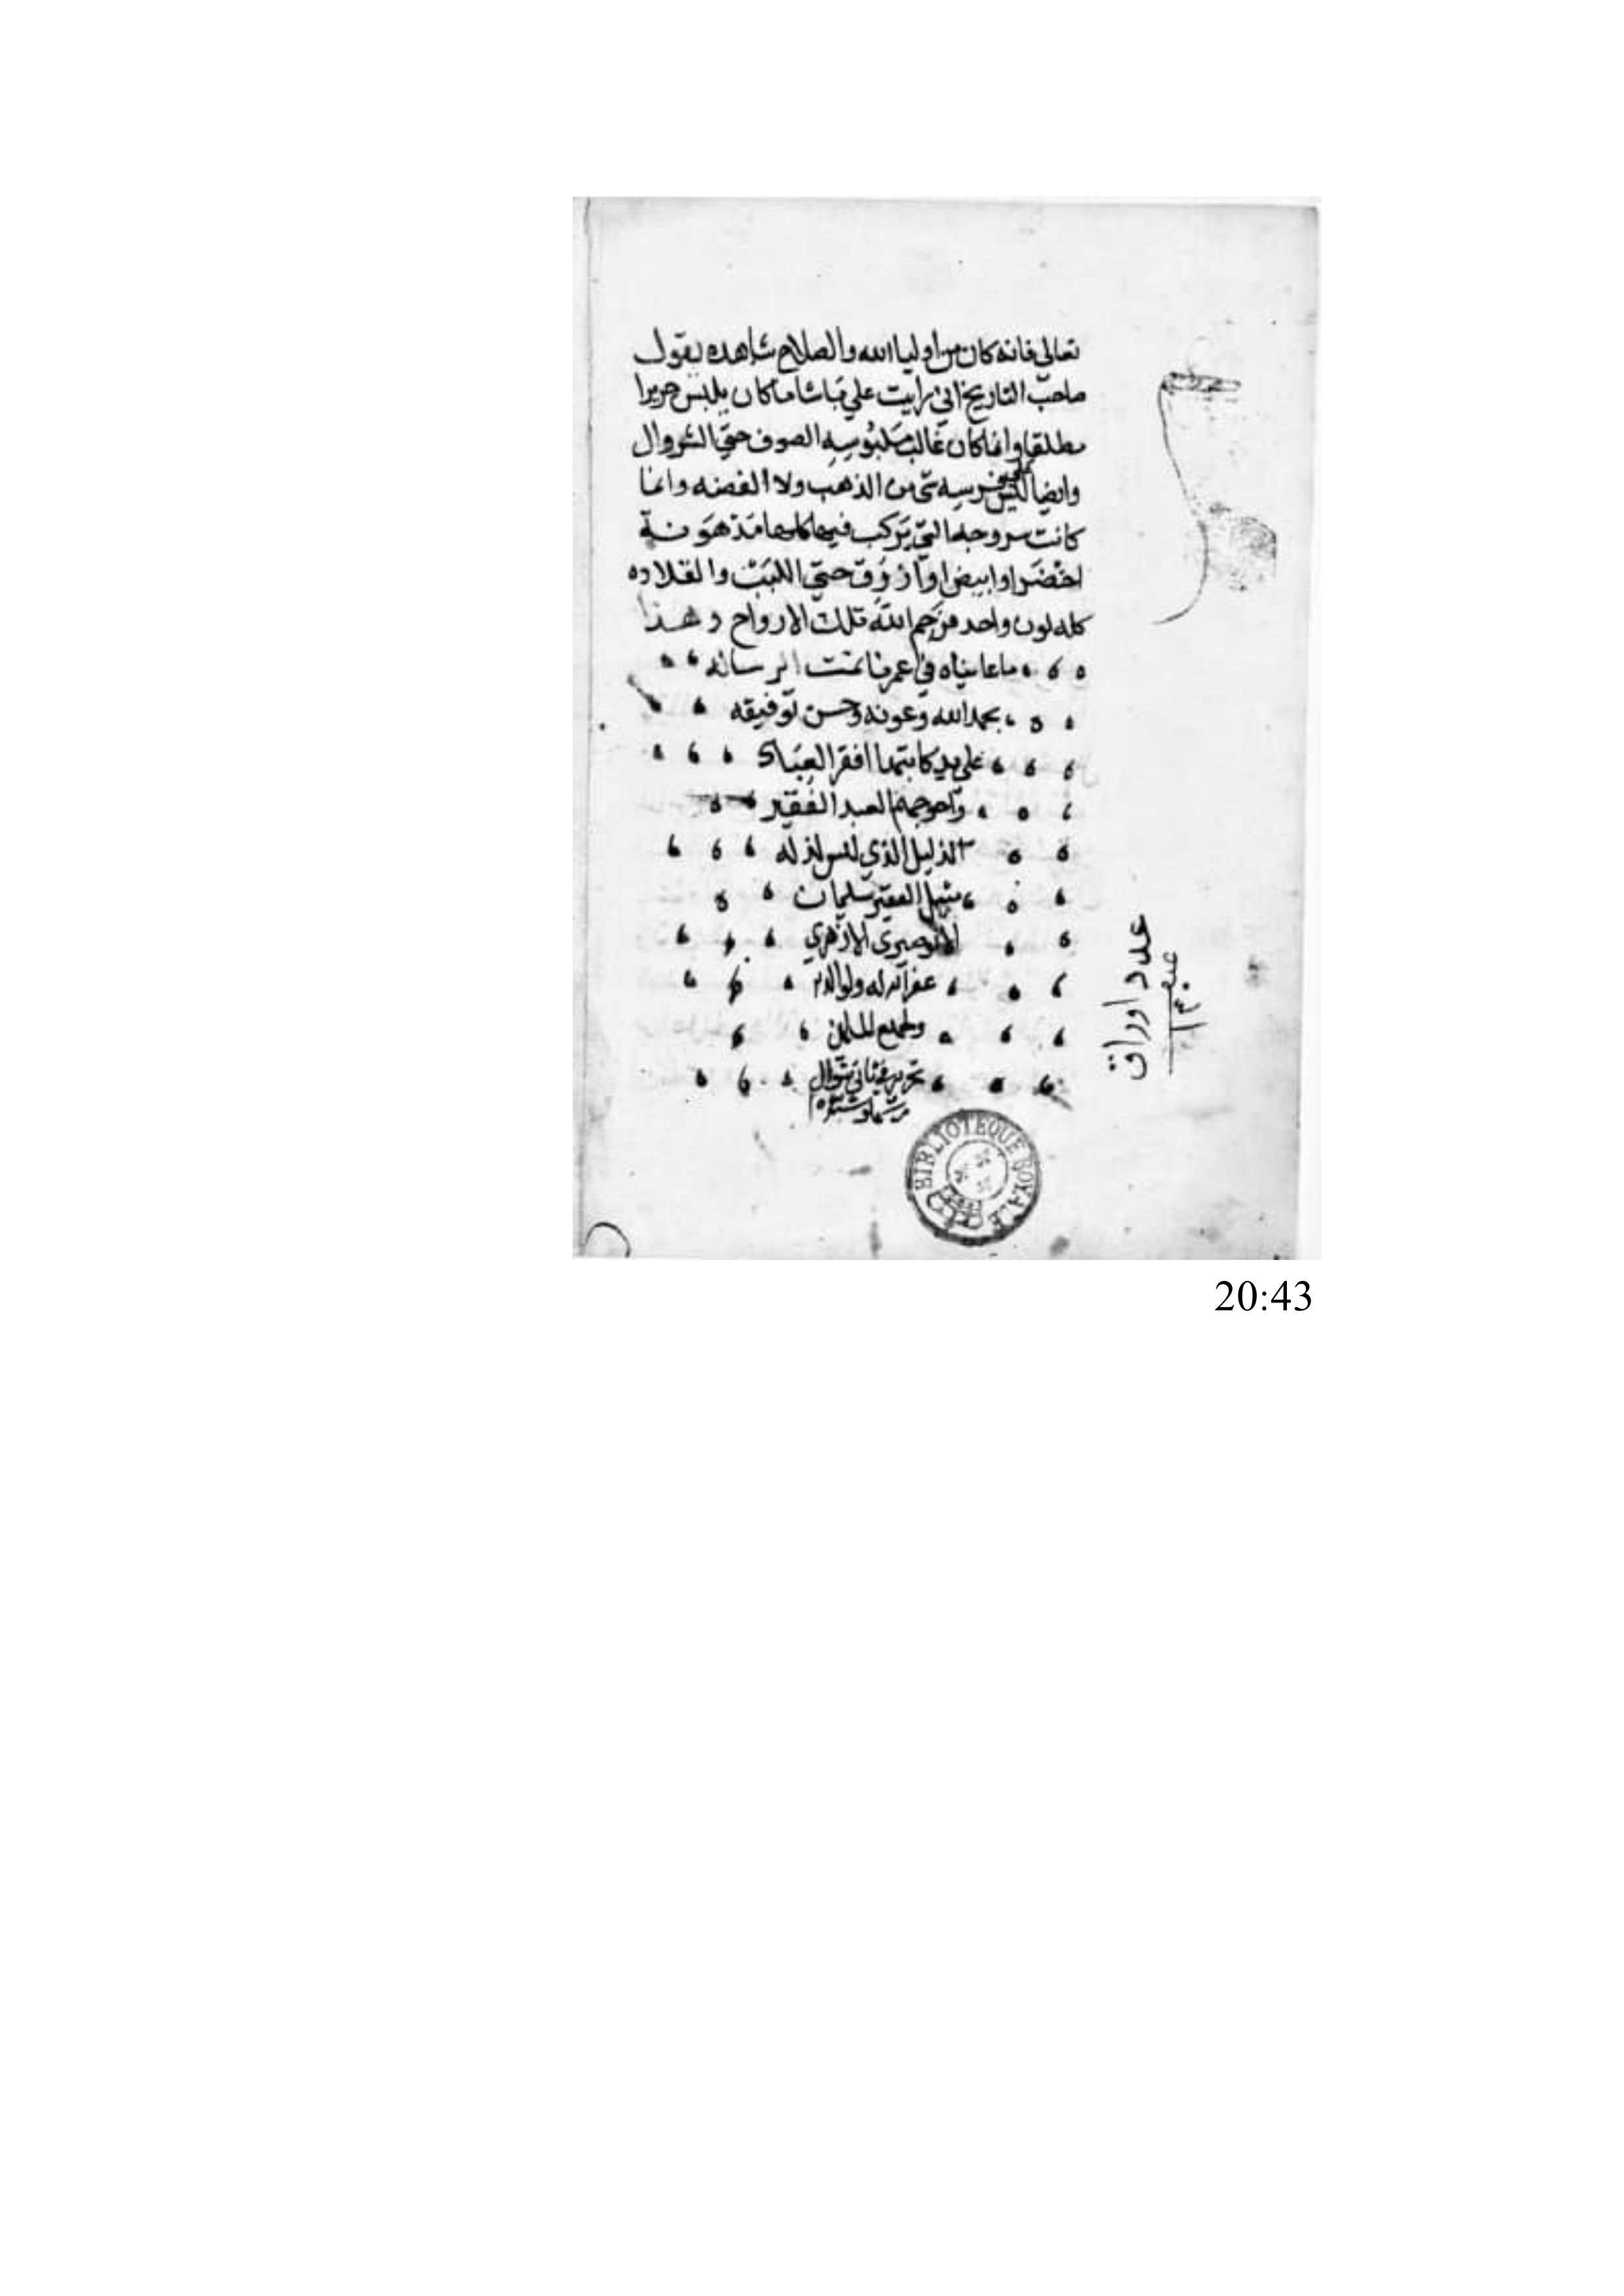 تعالى فانه كان من اوليا الله والصلاح شاهده يقول
صاحب التاريخ اني رايت علي باشا ما كان يلبس حريرا
مطلقا وانما كان غالب ملبوسه الصوف حتي الشروال
وايضا ليس في فرسه شي من الذهب ولا الفضه وانما
كانت سروجه التي يركب فيها كلها مدهونة
اخضر او ابيض او ازرق حتي اللبب والقلاده
كله لون واحد فرحم الله تلك الارواح وهذا
ما عايناه في عمرنا تمت الرساله
بحمد الله وعونه وحسن توفيقه
علي يد كاتبها افقر العباد
واحوجهم العبد الفقير
الذليل الذي ليس لذله
مثيل الفقير سليمان
الازهري
غفر الله له ولوالديه
ولجميع المسلمين
تحريرا في ثاني شوال
عدد اوراق
١٣٠
BIBLIOTEQUE ROYALE
20:43